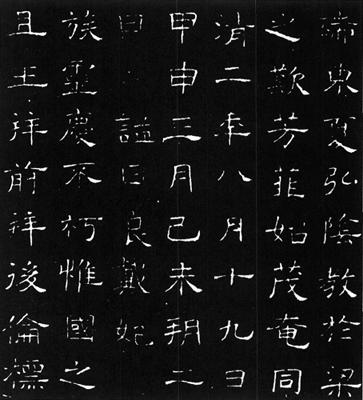 東夏弘陰教於梁
之歎芳菲如茂奄同
清二年八月十九日
甲申三月己未朔二
日謚曰良戴妃
族靈慶不朽惟國之
且王祥前祥後倫標